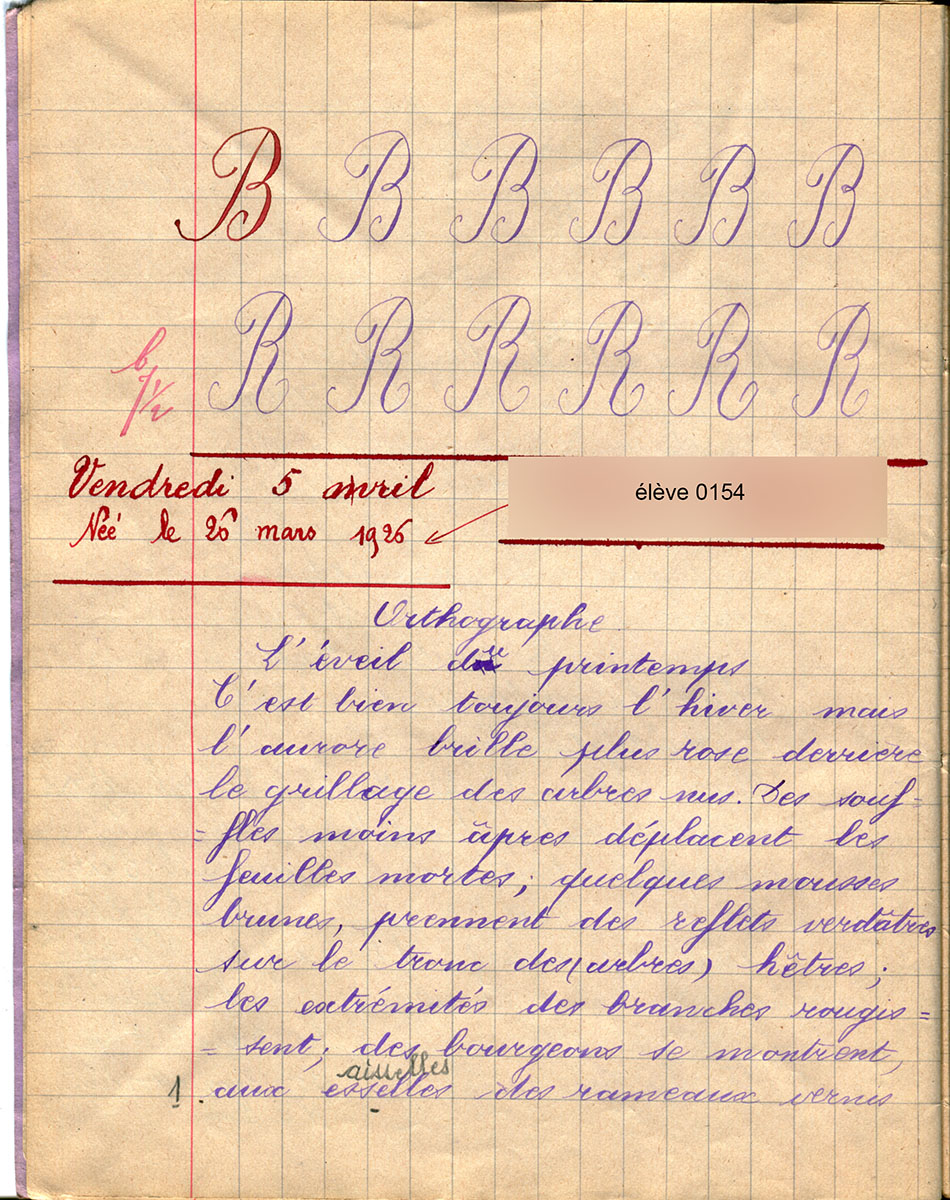 B B B B B B
R R R R R R
b
7 1/2
Vendredi 5 avril
élève 0154
Née le 26 mars 1926
Orthographe
L'éveil du printemps
C'est bien toujours l'hiver mais
l'aurore brille plus rose derrière
le grillage des arbres nus. Des souf=
=fles moins âpres déplacent les
feuilles mortes; quelques mousses
brunes, prennent des reflets verdâtres
sur le tronc des (arbres) hêtres;
les extrémités des branches rougis=
=sent; des bourgeons se montrent,
aisselles
1 aux esselles des rameaux vernis